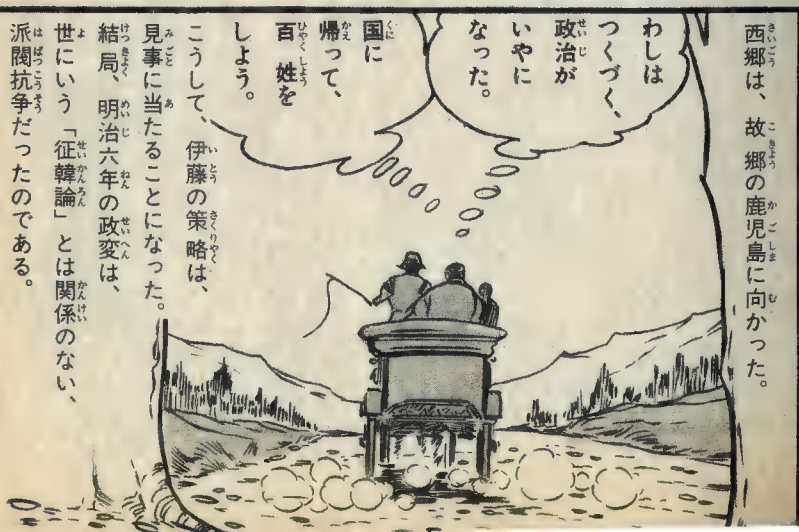 西郷は、故郷の鹿児島に向かった。
わしは
つくづく、
政治が
いやに
なった。
国に
帰って、
百姓を
しよう。
こうして、伊藤の策略は、
見事に当たることになった。
結局、明治六年の政変は、
世にいう「征韓論」とは関係のない、
派閥抗争だったのである。